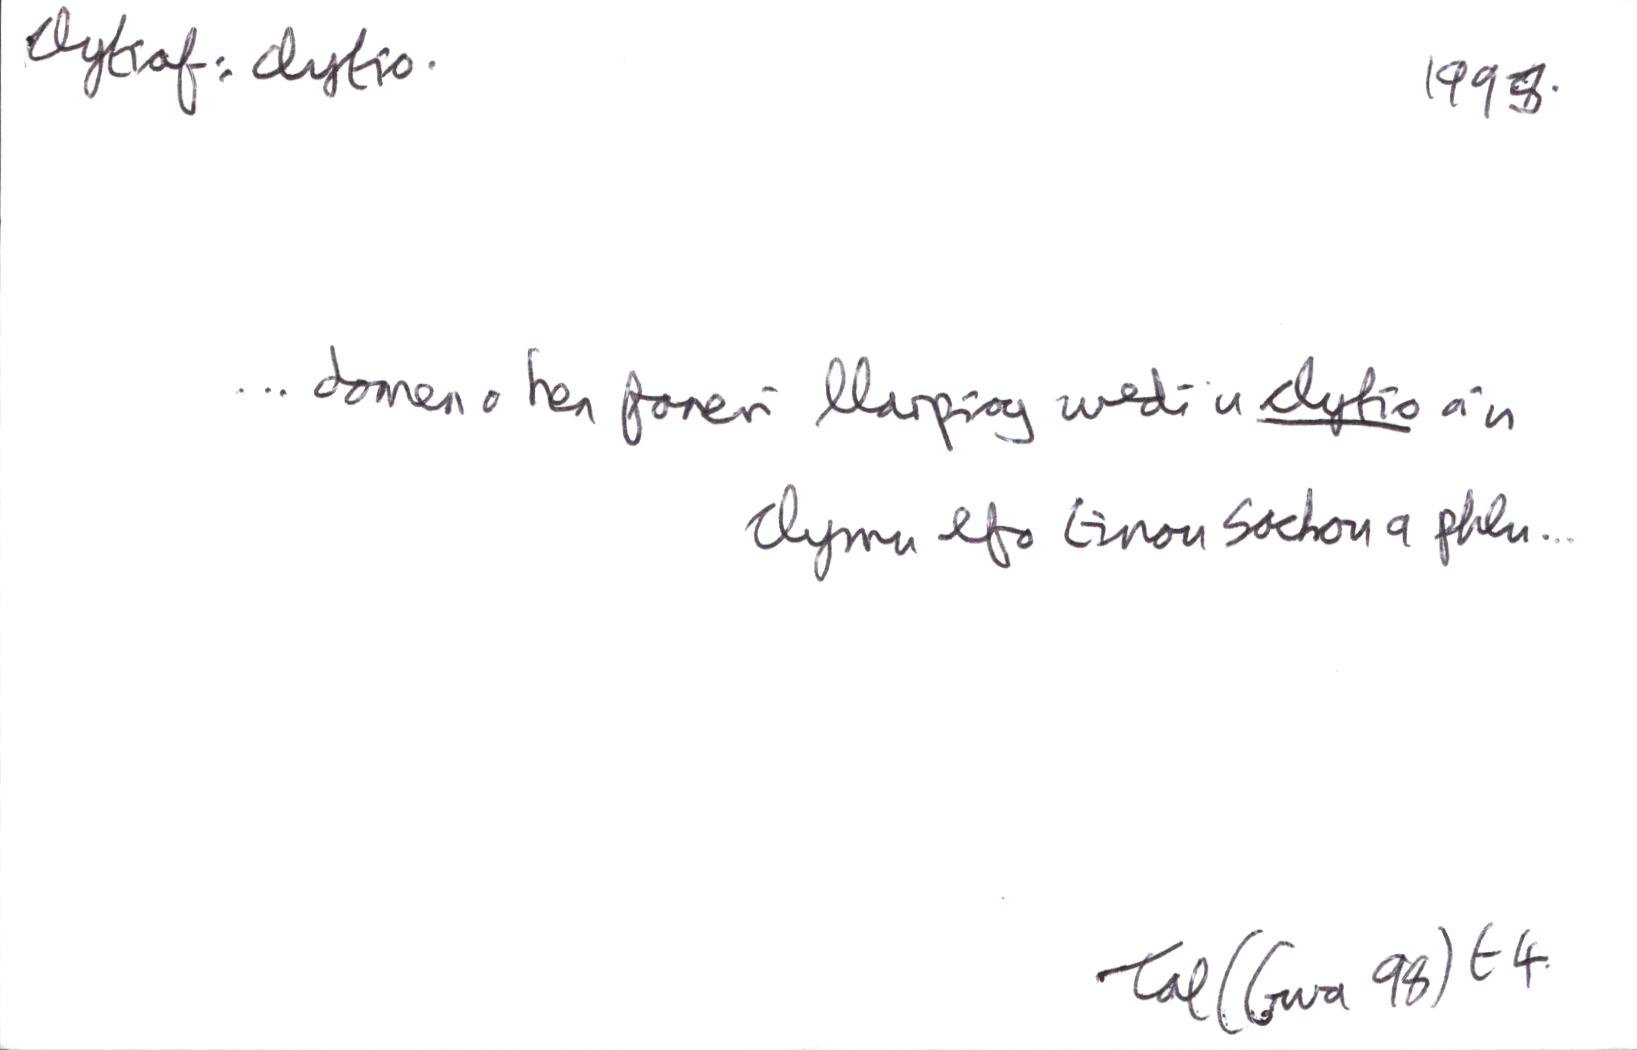 clytiaf: clytio.
1998.
... domen o hen faneri llarpiog wedi'u clytio a'u
clymu efo tinau sachau a phlu...
Tal (Gwa 98) t 4.